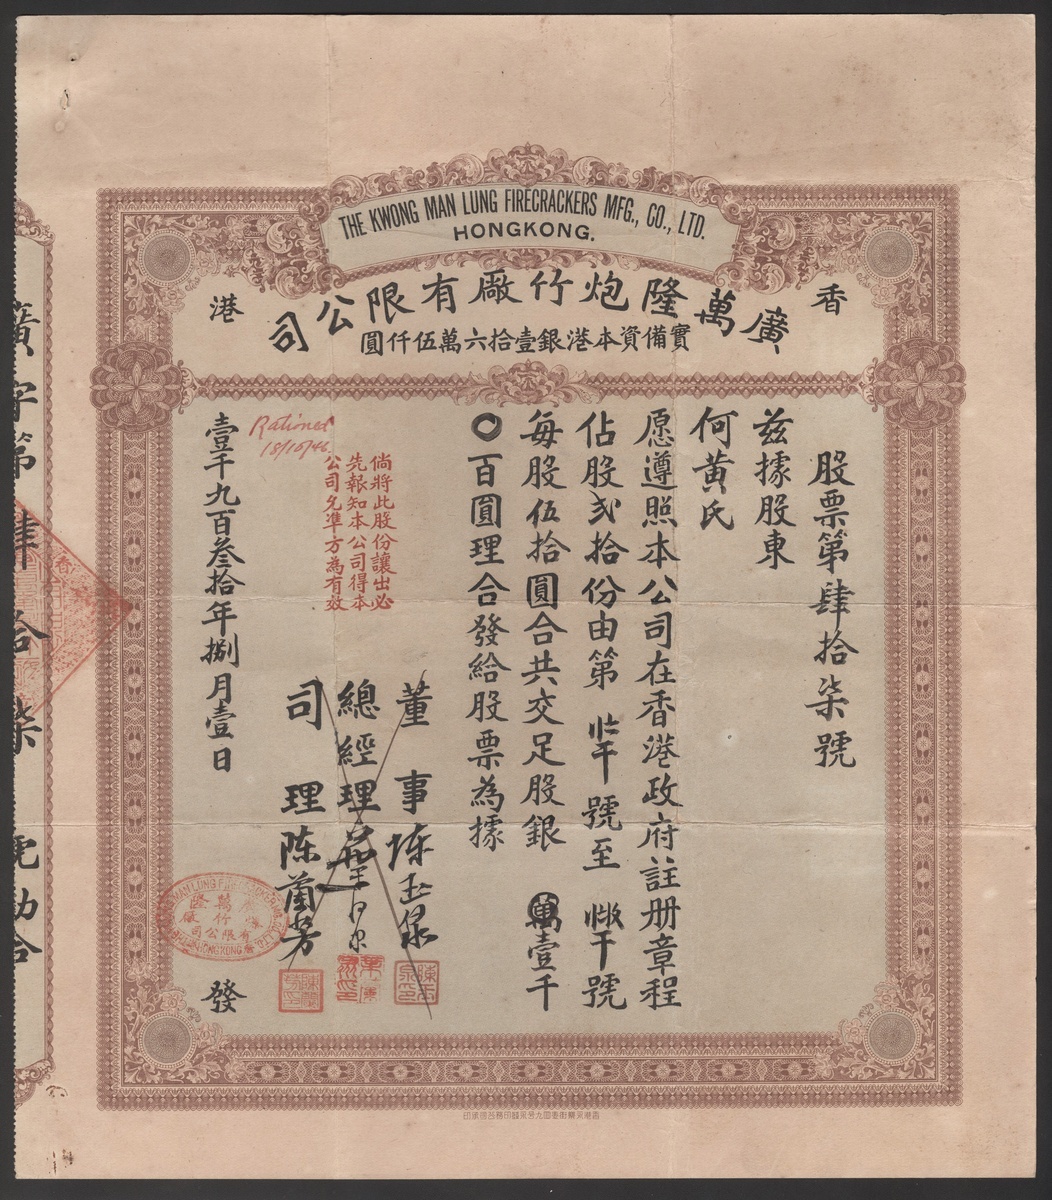 THE KWONG MAN LUNG FIRECRACKERS MFG., CO., LTD.
HONGKONG.
香港
廣萬隆炮竹廠有限公司
實備資本港銀壹拾六萬伍仟圓
股票第肆拾柒號
茲據股東
何黃氏
愿遵照本公司在香港政府註册章程
佔股貳拾份由第 號至 號
每股伍拾圓合共交足股銀 萬壹千
〇百圓理合發給股票為據
董事陳玉泉
總經理
司理陈蘭芳
倘將此股份讓出必
先報知本公司得本
公司允準方為有效
18/10/46
壹千九百叁拾年捌月壹日
發
廣字第肆拾柒號勷合